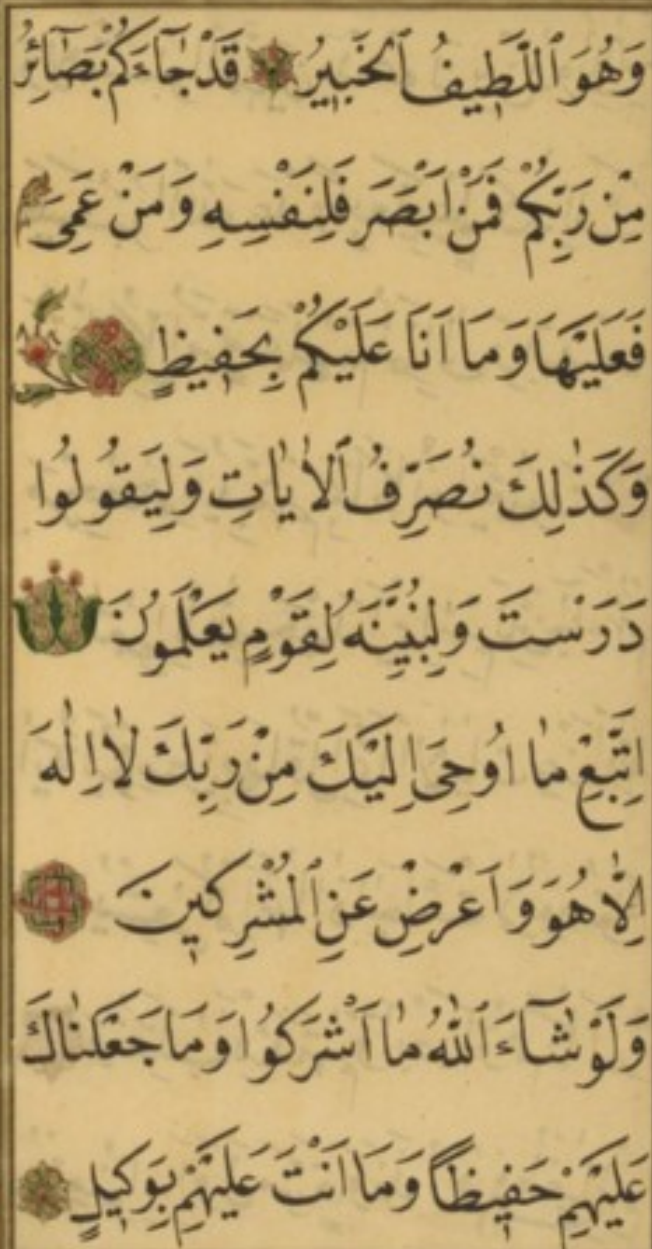 وَهُوَ ٱللَّطِيفُ ٱلْخَبِيرُ قَدْ جَآءَكُمْ بَصَآئِرُ
مِنْ رَبِّكُمْ فَمَنْ اَبْصَرَ فَلِنَفْسِهِ وَمَنْ عَمِىَ
فَعَلَيْهَا وَمَا اَنَا عَلَيْكُمْ بِحَفِيظٍ
وَكَذٰلِكَ نُصَرِّفُ ٱلْاٰيَاتِ وَلِيَقُولُوا
دَرَسْتَ وَلِنُبَيِّنَهُ لِقَوْمٍ يَعْلَمُونَ
اِتَّبِعْ مَا اُوحِىَ اِلَيْكَ مِنْ رَبِّكَ لَا اِلٰهَ
اِلَّا هُوَ وَاَعْرِضْ عَنِ ٱلْمُشْرِكِينَ
وَلَوْ شَآءَ ٱللّٰهُ مَا اَشْرَكُوا وَمَا جَعَلْنَاكَ
عَلَيْهِمْ حَفِيظًا وَمَا اَنْتَ عَلَيْهِمْ بِوَكِيلٍ